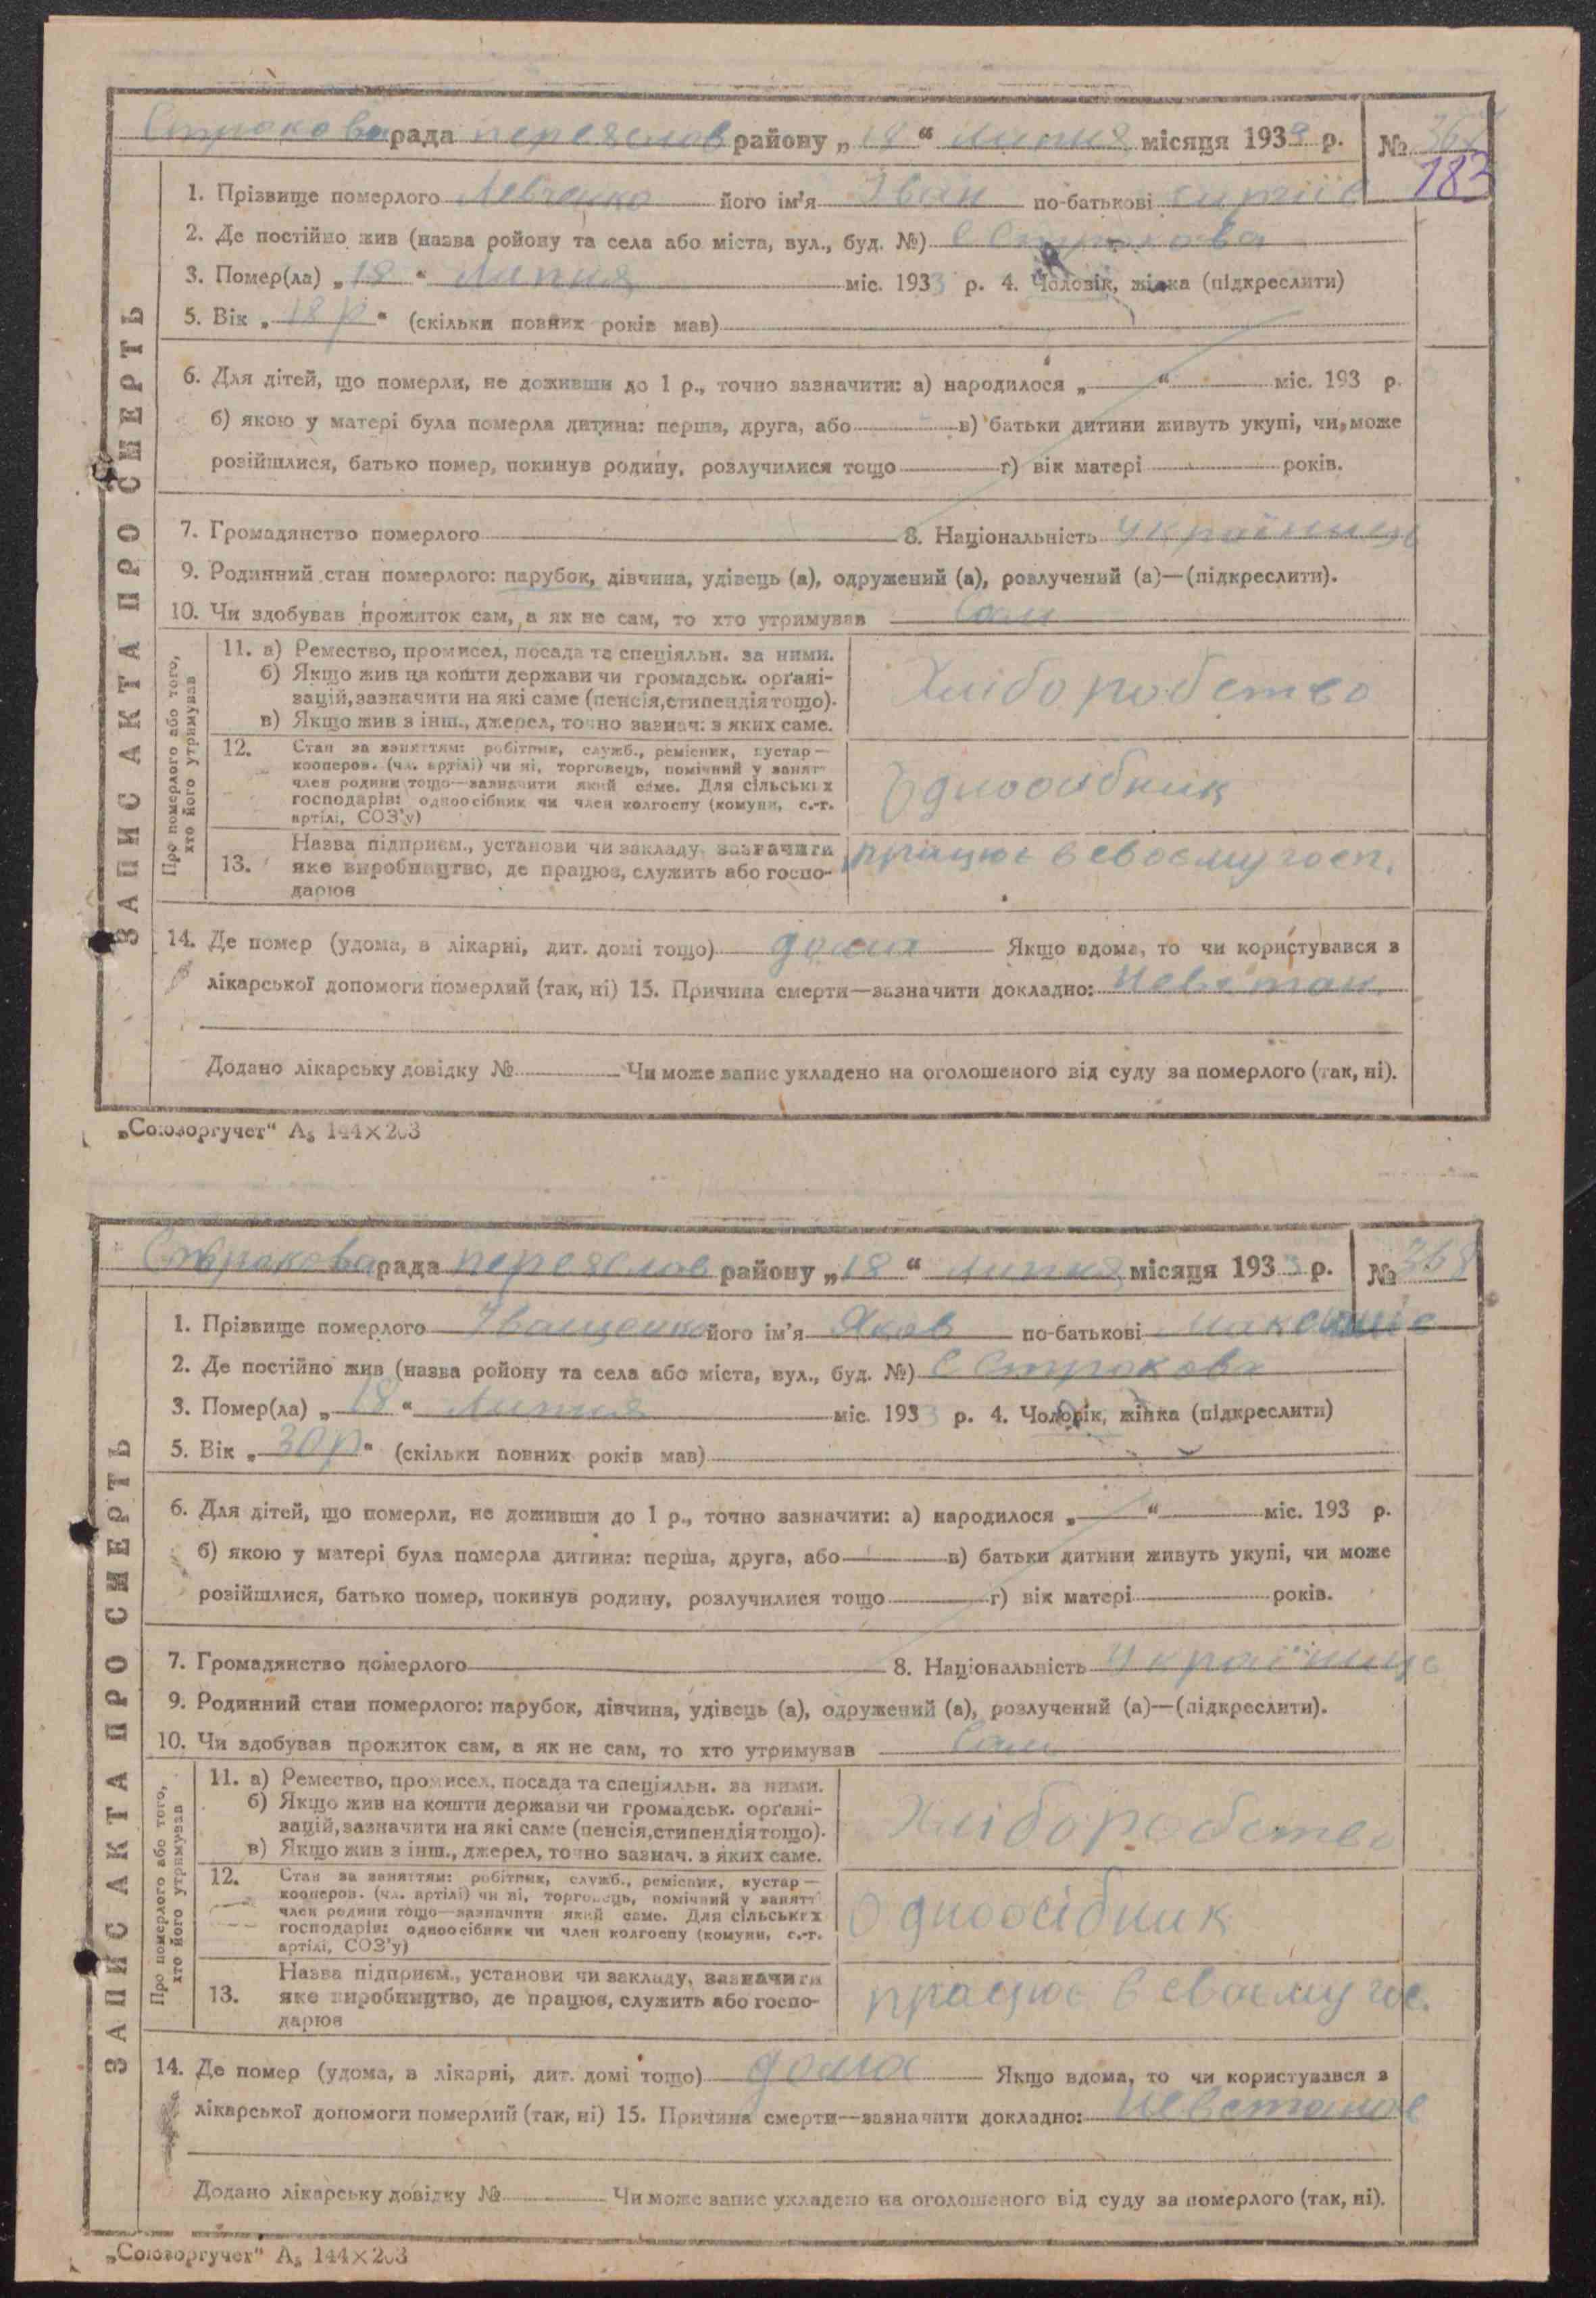 Стракова рада переяслов району „18“ липня місяця 1933 р. № 367
183
1. Прізвище померлого Левченко його ім'я Іван по-батькові
2. Де постійно жив (назва ройону та села або міста, вул., буд. №) с Стракова
3. Помер(ла) „18“ липня міс. 1933 р. 4. Чоловік, жінка (підкреслити)
5. Вік „18 р“ (скільки повних років мав)
6. Для дітей, що померли, не доживши до 1 р., точно зазначити: а) народилося „ “ міс. 193 р.
б) якою у матері була померла дитина: перша, друга, або в) батьки дитини живуть укупі, чи може
розійшлися, батько помер, покинув родину, розлучилися тощо г) вік матері років.
7. Громадянство померлого 8. Національність Українець
9. Родинний стан померлого: парубок, дівчина, удівець (а), одружений (а), розлучений (а)—(підкреслити).
10. Чи здобував прожиток сам, а як не сам, то хто утримував Сам
ЗАПИС АКТА ПРО СМЕРТЬ
Про померлого або того, хто його утримував
11. а) Ремество, промисел, посада та спеціяльн. за ними.
б) Якщо жив на кошти держави чи громадськ. органі-
зацій, зазначити на які саме (пенсія, стипендія тощо).
в) Якщо жив з інш., джерел, точно зазнач. з яких саме.
Хліборобство
12. Стан за заняттям: робітник, служб., ремісник, кустар—
кооперов. (чл. артілі) чи ні, торговець, помічний у занят
член родини тощо—зазначити який саме. Для сільських
господарів: одноосібник чи член колгоспу (комуни, с.-г.
артілі, СОЗ'у)
Одноосібник
13. Назва підприєм., установи чи закладу, зазначити
яке виробництво, де працює, служить або госпо-
дарює
працює в своєму госп.
14. Де помер (удома, в лікарні, дит. домі тощо) дома Якщо вдома, то чи користувався з
лікарської допомоги померлий (так, ні) 15. Причина смерти—зазначити докладно:
Додано лікарську довідку № Чи може запис укладено на оголошеного від суду за померлого (так, ні).
„Союзоргучет“ А₅ 144×203
Стракова рада переяслов району „18“ липня місяця 1933 р. № 368
1. Прізвище померлого Іващенко його ім'я Яков по-батькові
2. Де постійно жив (назва ройону та села або міста, вул., буд. №) с Стракова
3. Помер(ла) „18“ липня міс. 1933 р. 4. Чоловік, жінка (підкреслити)
5. Вік „30 р“ (скільки повних років мав)
6. Для дітей, що померли, не доживши до 1 р., точно зазначити: а) народилося „ “ міс. 193 р.
б) якою у матері була померла дитина: перша, друга, або в) батьки дитини живуть укупі, чи може
розійшлися, батько помер, покинув родину, розлучилися тощо г) вік матері років.
7. Громадянство померлого 8. Національність Українець
9. Родинний стан померлого: парубок, дівчина, удівець (а), одружений (а), розлучений (а)—(підкреслити).
10. Чи здобував прожиток сам, а як не сам, то хто утримував Сам
ЗАПИС АКТА ПРО СМЕРТЬ
Про померлого або того, хто його утримував
11. а) Ремество, промисел, посада та спеціяльн. за ними.
б) Якщо жив на кошти держави чи громадськ. органі-
зацій, зазначити на які саме (пенсія, стипендія тощо).
в) Якщо жив з інш., джерел, точно зазнач. з яких саме.
Хліборобство
12. Стан за заняттям: робітник, служб., ремісник, кустар—
кооперов. (чл. артілі) чи ні, торговець, помічний у занятт
член родини тощо—зазначити який саме. Для сільських
господарів: одноосібник чи член колгоспу (комуни, с.-г.
артілі, СОЗ'у)
Одноосібник
13. Назва підприєм., установи чи закладу, зазначити
яке виробництво, де працює, служить або госпо-
дарює
працює в своєму гос.
14. Де помер (удома, в лікарні, дит. домі тощо) дома Якщо вдома, то чи користувався з
лікарської допомоги померлий (так, ні) 15. Причина смерти—зазначити докладно:
Додано лікарську довідку № Чи може запис укладено на оголошеного від суду за померлого (так, ні).
„Союзоргучет“ А₅ 144×203